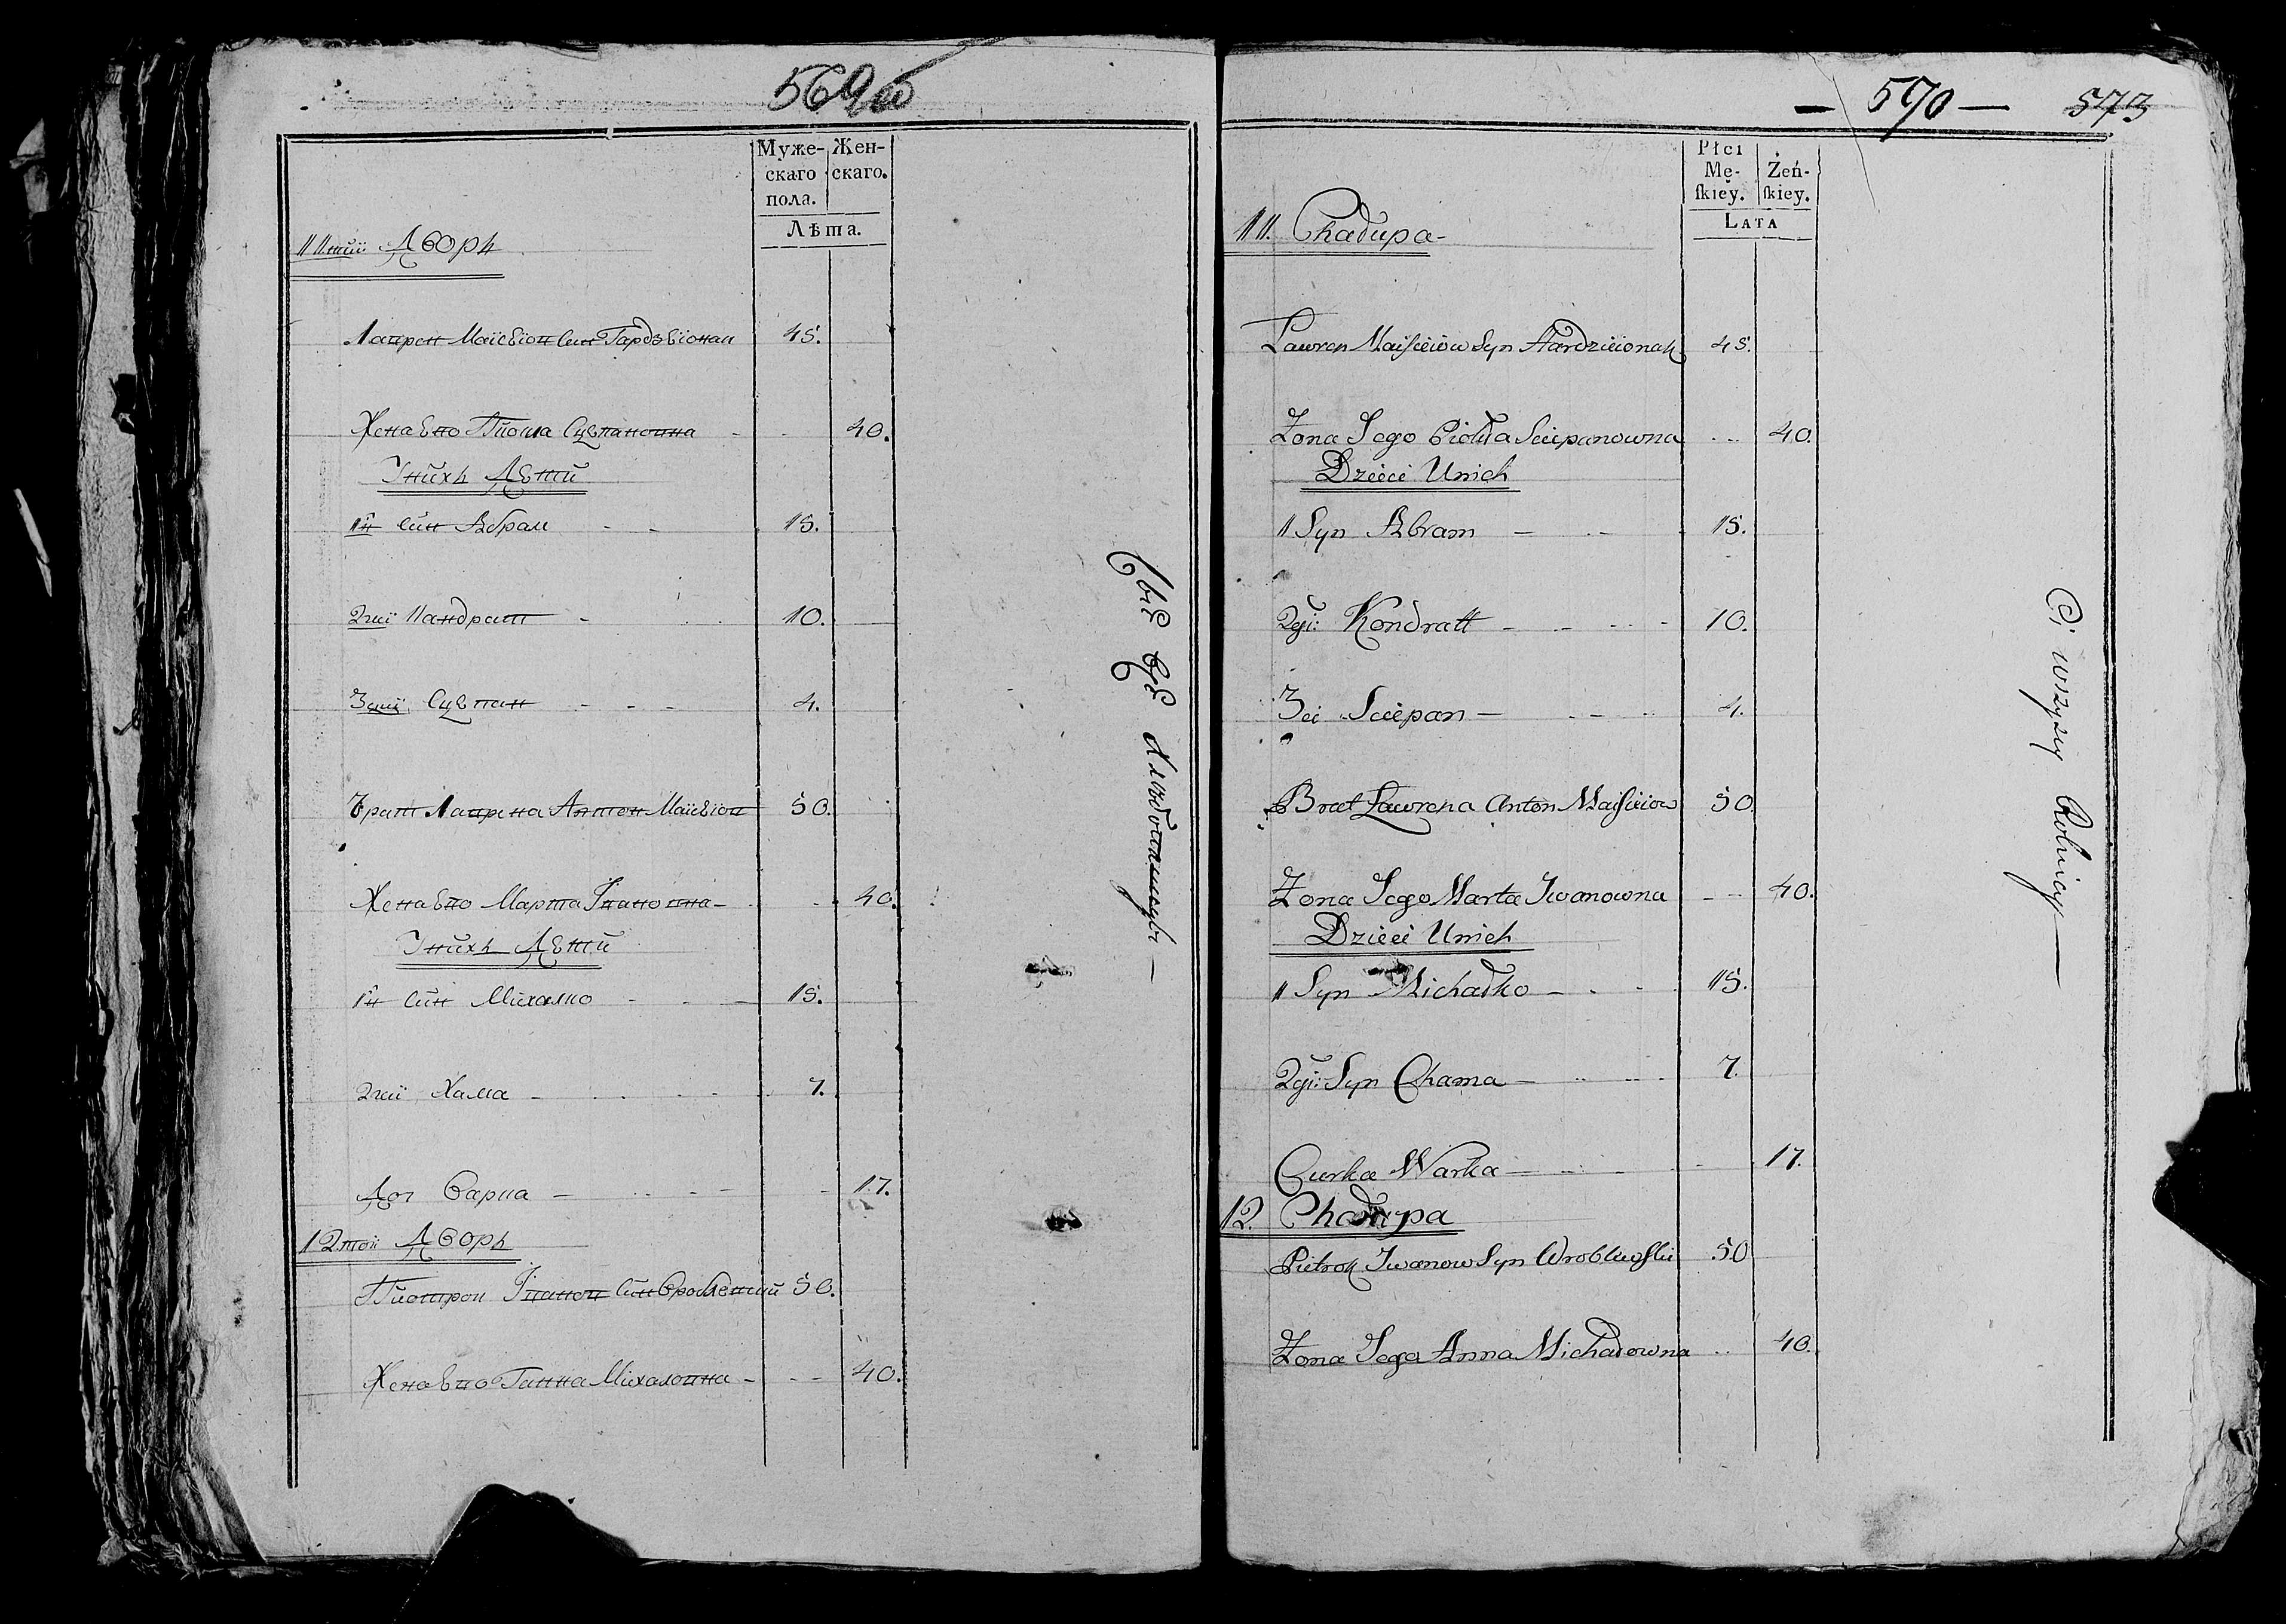 569б
Муже- Жен-
скаго скаго.
пола.
Лѣта.
11тый Дворъ
Лаврен Маісеіов Сын Гардзееіонак 45.
Жена Ево Піотла Сцепановна 40.
У них Дети
1й Сын Абрам 15.
2гий Кандрат 10.
3тий Сцепан 4.
Брат Лаврена Антон Маісеіов 50.
Жена Ево Марта Ивановна 40.
У них Дети
1й Сын Михалко 15.
2гий Хама 7.
Доч Варка 17.
12той Дворъ
Піотрок Иванов Сын Врублевский 50.
Жена Ево Ганна Михаловна 40.
все хлебопашеcцы
— 570 — 573
Płci
Mę- Żeń-
ſkiey. ſkiey.
Lata
11. Chałupa
Lawren Maisieiow Syn Hardzieionak 45.
Żona Jego Piotła Sciepanowna 40.
Dzieci Unich
1 Syn Abram 15.
2gi: Kondratt 10.
3ci Sciepan 4.
Brat Lawrena Anton Maisieiow 50
Żona Jego Marta Iwanowna 40.
Dzieci Unich
1 Syn Michałko 15.
2gi: Syn Chama 7.
Curka Warka 17.
12. Chałupa
Pietrok Iwanow Syn Wroblewski 50
Żona Jego Anna Michałowna 40.
Ci wszyscy Rolnicy